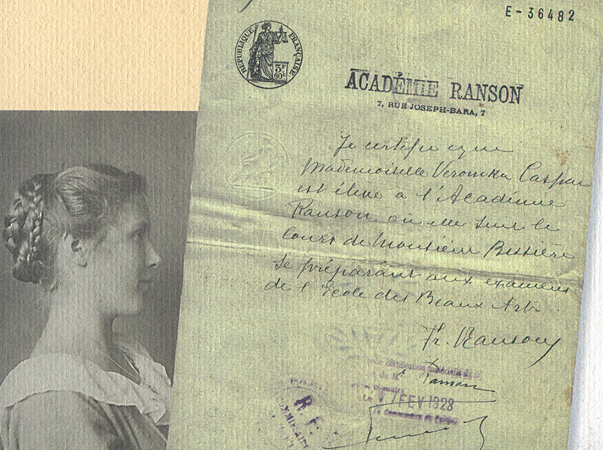 E-36482
RÉPUBLIQUE FRANÇAISE
3F
ACADÉMIE RANSON
7, RUE JOSEPH-BARA, 7
Je certifie que
Mademoiselle Veronika Caspar
est élève à l'Académie
Ranson où elle suit le
cours de Monsieur Bissière
se préparant aux examens
de l'école des Beaux Arts
Fr. Ranson
certification matérielle
Ranson
FEV 1928
Le Commissaire de
R.F.